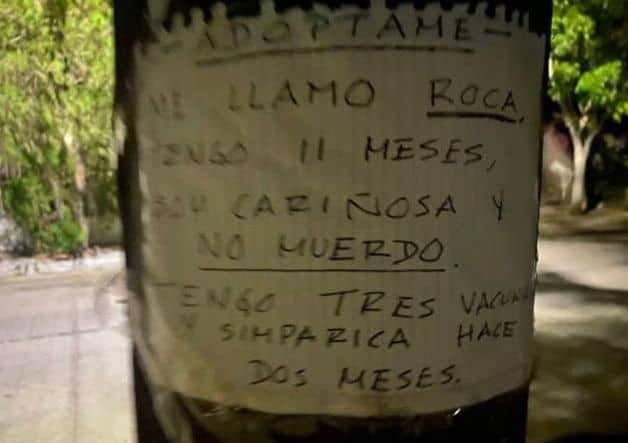 -ADOPTAME-
ME LLAMO ROCA,
TENGO 11 MESES,
SOY CARIÑOSA Y
NO MUERDO.
TENGO TRES VACUNAS
Y SIMPARICA HACE
DOS MESES.